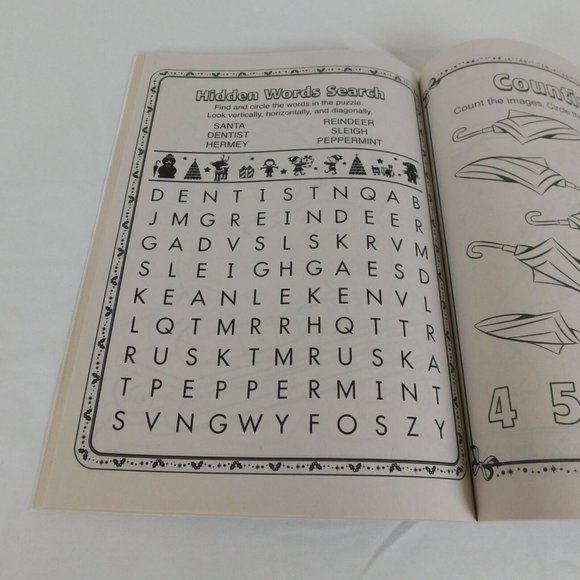 Hidden Words Search
Find and circle the words in the puzzle.
Look vertically, horizontally, and diagonally.
SANTA REINDEER
DENTIST SLEIGH
HERMEY PEPPERMINT
D E N T I S T N Q A B
J M G R E I N D E E R
G A D V S L S K R V M
S L E I G H G A E S D
K E A N L E K E N V L
L Q T M R R H Q T T R
R U S K T M R U S K A
T P E P P E R M I N T
S V N G W Y F O S Z Y
Counti
Count the images. Circle the
4 5